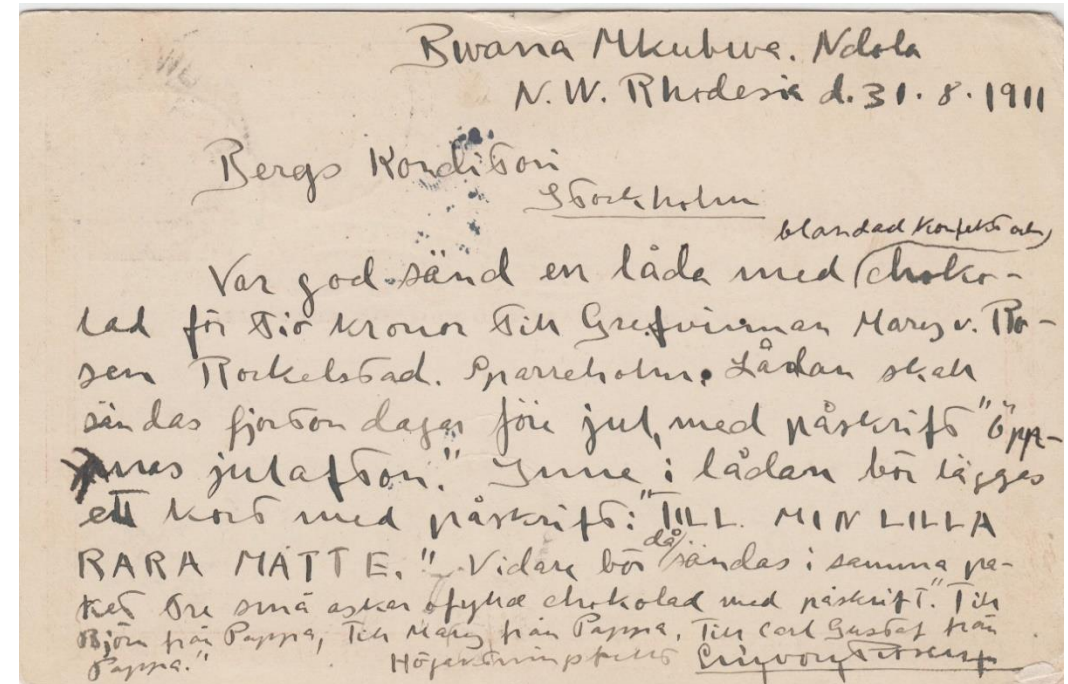 Bwana Mkubwa. Ndola
N. W. Rhodesia d. 31. 8. 1911
Bergs Konditori
Stockholm
blandad konfekt och
Var god sänd en låda med choko-
lad för tio kronor till Grefvinnan Mary v. Ro-
sen Rockelstad. Sparreholm. Lådan skall
sändas fjorton dagar före jul, med påskrift "öpp-
nas julafton." Inne i lådan bör läggas
ett kort med påskrift: "TILL MIN LILLA
RARA MATTE." Vidare bör då sändas i samma pa-
ket tre små askar ofylld chokolad med påskrift: "Till
Björn från Pappa, Till Mary från Pappa, Till Carl Gustaf från
Pappa."
Högaktningsfullt